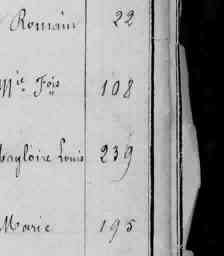 Romain 22
Mie Fois 108
Magloire Louis 239
Marie 195